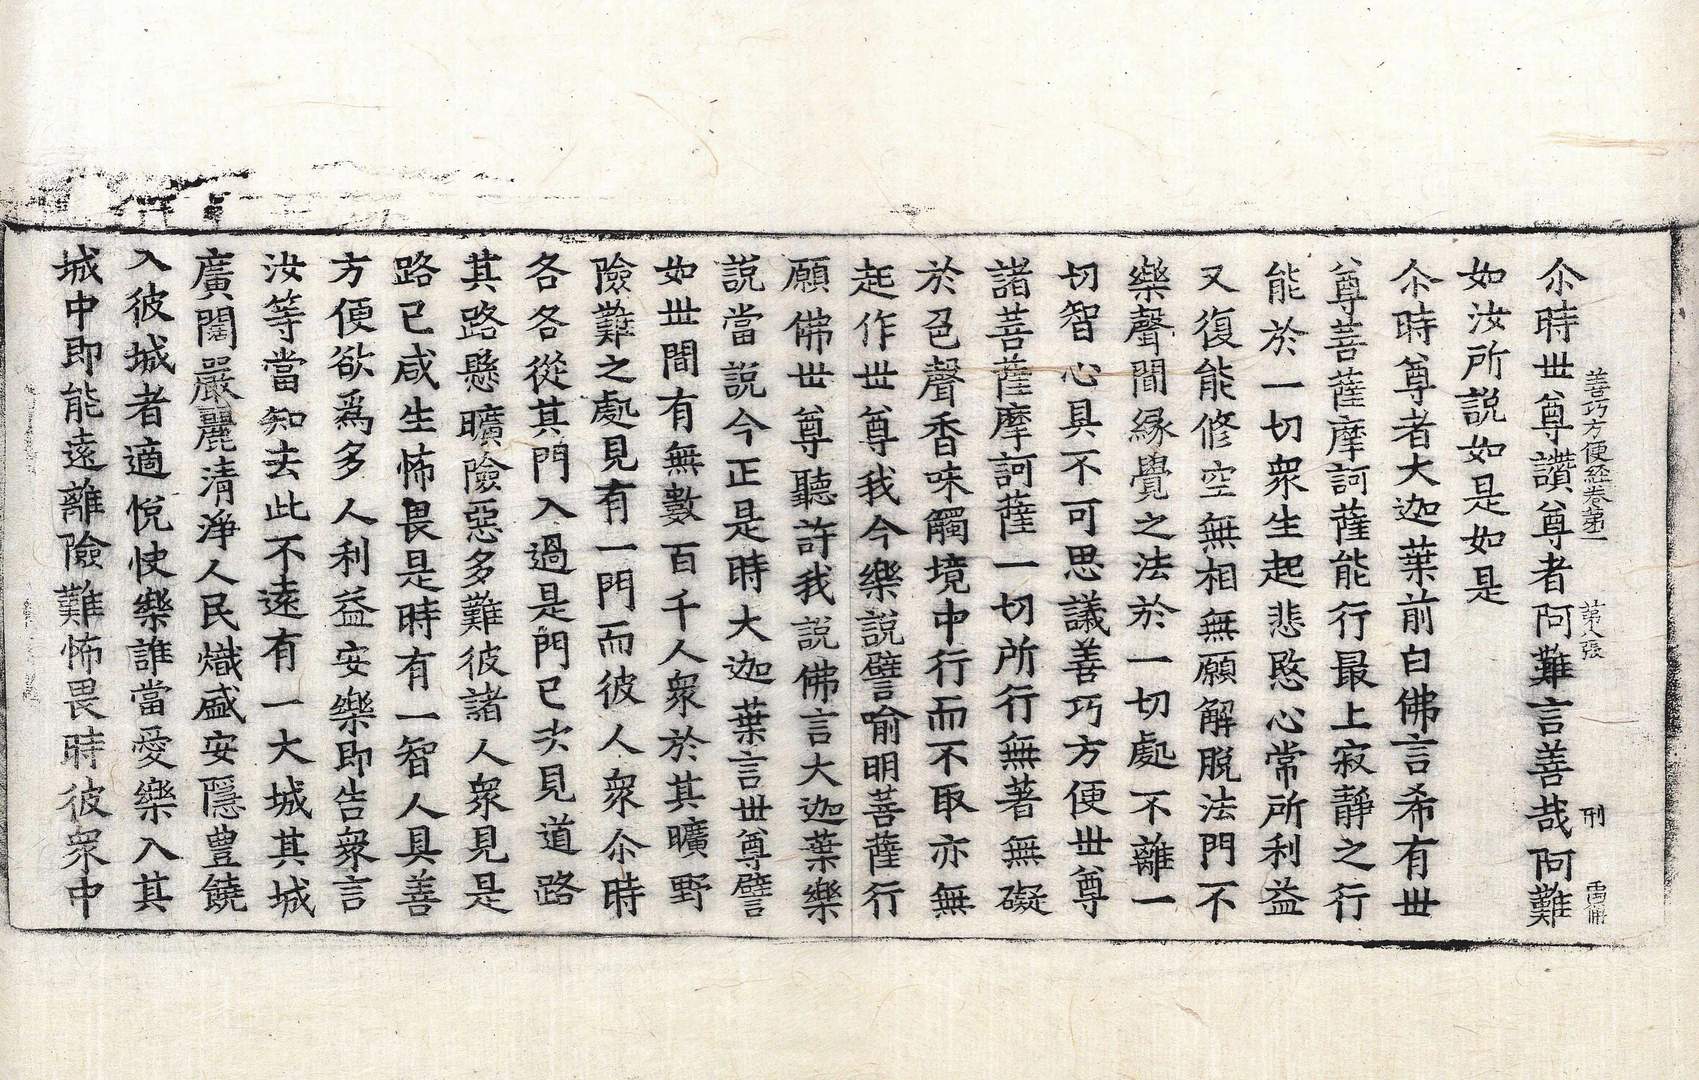 善巧方便經卷第一 第八張 刑
尒時世尊讚尊者阿難言善哉阿難
如汝所説如是如是
尒時尊者大迦葉前白佛言希有世
尊菩薩摩訶薩能行最上寂靜之行
能於一切衆生起悲愍心常所利益
又復能修空無相無願解脫法門不
樂聲聞緣覺之法於一切處不離一
切智心具不可思議善巧方便世尊
諸菩薩摩訶薩一切所行無著無礙
於色聲香味觸境中行而不取亦無
起作世尊我今樂説譬喻明菩薩行
願佛世尊聽許我説佛言大迦葉樂
説當説今正是時大迦葉言世尊譬
如世間有無數百千人衆於其曠野
險難之處見有一門而彼人衆尒時
各各從其門入過是門已次見道路
其路懸曠險惡多難彼諸人衆見是
路已咸生怖畏是時有一智人具善
方便欲爲多人利益安樂即告衆言
汝等當知去此不遠有一大城其城
廣闊嚴麗清淨人民熾盛安隱豊饒
入彼城者適悅快樂誰當愛樂入其
城中即能遠離險難怖畏時彼衆中